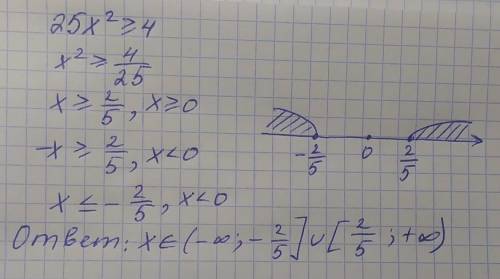 25x² ≥ 4
x² ≥ 4/25
x ≥ 2/5, x ≥ 0
-x ≥ 2/5, x < 0
x ≤ - 2/5, x < 0
-2/5 0 2/5
Ответ: x ∈ (-∞; -2/5] ∪ [2/5; +∞)